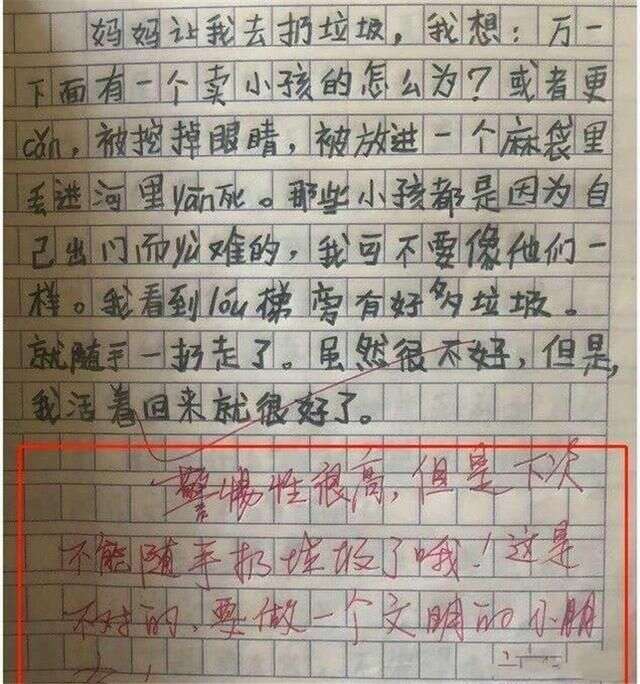 妈妈让我去扔垃圾，我想：万一
下面有一个卖小孩的怎么为？或者更
cǎn，被挖掉眼睛，被放进一个麻袋里
丢进河里yān死。那些小孩都是因为自
己出门而yù难的，我可不要像他们一
样。我看到lóu梯旁有好多垃圾。
就随手一扔走了。虽然很不好，但是，
我活着回来就很好了。
警惕性很高，但是下次
不能随手扔垃圾了哦！这是
不对的，要做一个文明的小朋
友！